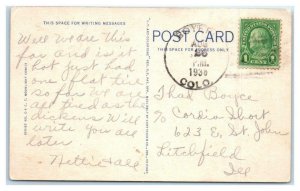 THIS SPACE FOR WRITING MESSAGES
POST CARD
THIS SPACE FOR ADDRESS ONLY
Well we are this
far and is it
hot just had
one flat tire
so far we are
all tired as the
dickens Will
write you are
later
Nettie & all
AUG
28
1936
COLO.
1 CENT
Thad Boyce
℅ Cordia Short
623 E. St. John
Litchfield
Ill